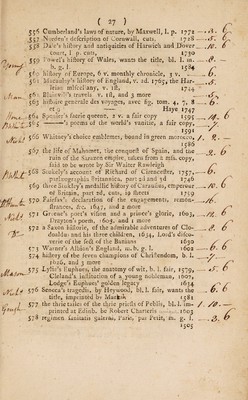 ( 27 )
556 Cumberland's laws of nature, by Maxwell, l. p. 1727
557 Norden's description of Cornwall, cuts, 1728
558 Dale's history and antiquities of Harwich and Dover
court, l p. cuts, 1730
559 Powel's history of Wales, wants the title, bl. l. in
b. g. l 1584
560 history of Europe, 6 v. monthly chronicle, 3 v.
561 Macaulay's history of England, v. 2d. 1765, the Har-
leian miscellany, v. 1st, 1744
562 travels, v 1st, and 3 more
563 histoire generale des voyages, avec fig. tom. 4, 7, 8
et 9 Haye 1747
564 Spenser's faerie queene, 2 v. a fair copy 1595
565 poems of the world's vanitie, a fair copy,
1591
566 Whitney's choice emblemes, bound in green morocco,
1586
567 the life of Mahomet, the conquest of Spain, and the
ruin of the Saracen empire, taken from a mss. copy,
said to be wrote by Sir Walter Rawleigh
568 Stukely's account of Richard of Cirencester, 1757,
paleographia Britannica, part 2d and 3d 1746
569 three Stukely's medallic history of Carausius, emperor
of Britain, part 2d, cuts, in sheets 1759
570 Fairfax's declaration of the engagements, remon-
strances, &c. 1647, and 2 more
571 Greene's poet's vision and a prince's glorie, 1603,
Drayton's poem, 1603. and 2 more
572 a Saxon historie, of the admirable adventures of Clo-
doaldus and his three children, 1634, Lord's disco-
verie of the sest of the Banians 1630
573 Warner's Albion's England, m. g. l 1602
574 history of the seven champions of Christendom, b. l
1626, and 3 more
575 Lyllie's Euphues, the anatomy of wit, b. l. fair, 1579,
Cleland's institution of a young nobleman, 1607,
Lodge's Euphues' golden legacy 1634
576 Seneca's tragedie, by Heywood, bl. l. fair, wants the
title, imprinted by Marsh 1581
577 the thrie tailes of the thrie priests of Peblis, bl. l. im-
printed at Edinb. be Robert Charteris 1603
578 regimen sanitatis galerni, Paris, par Petit, m. g. l.
1505